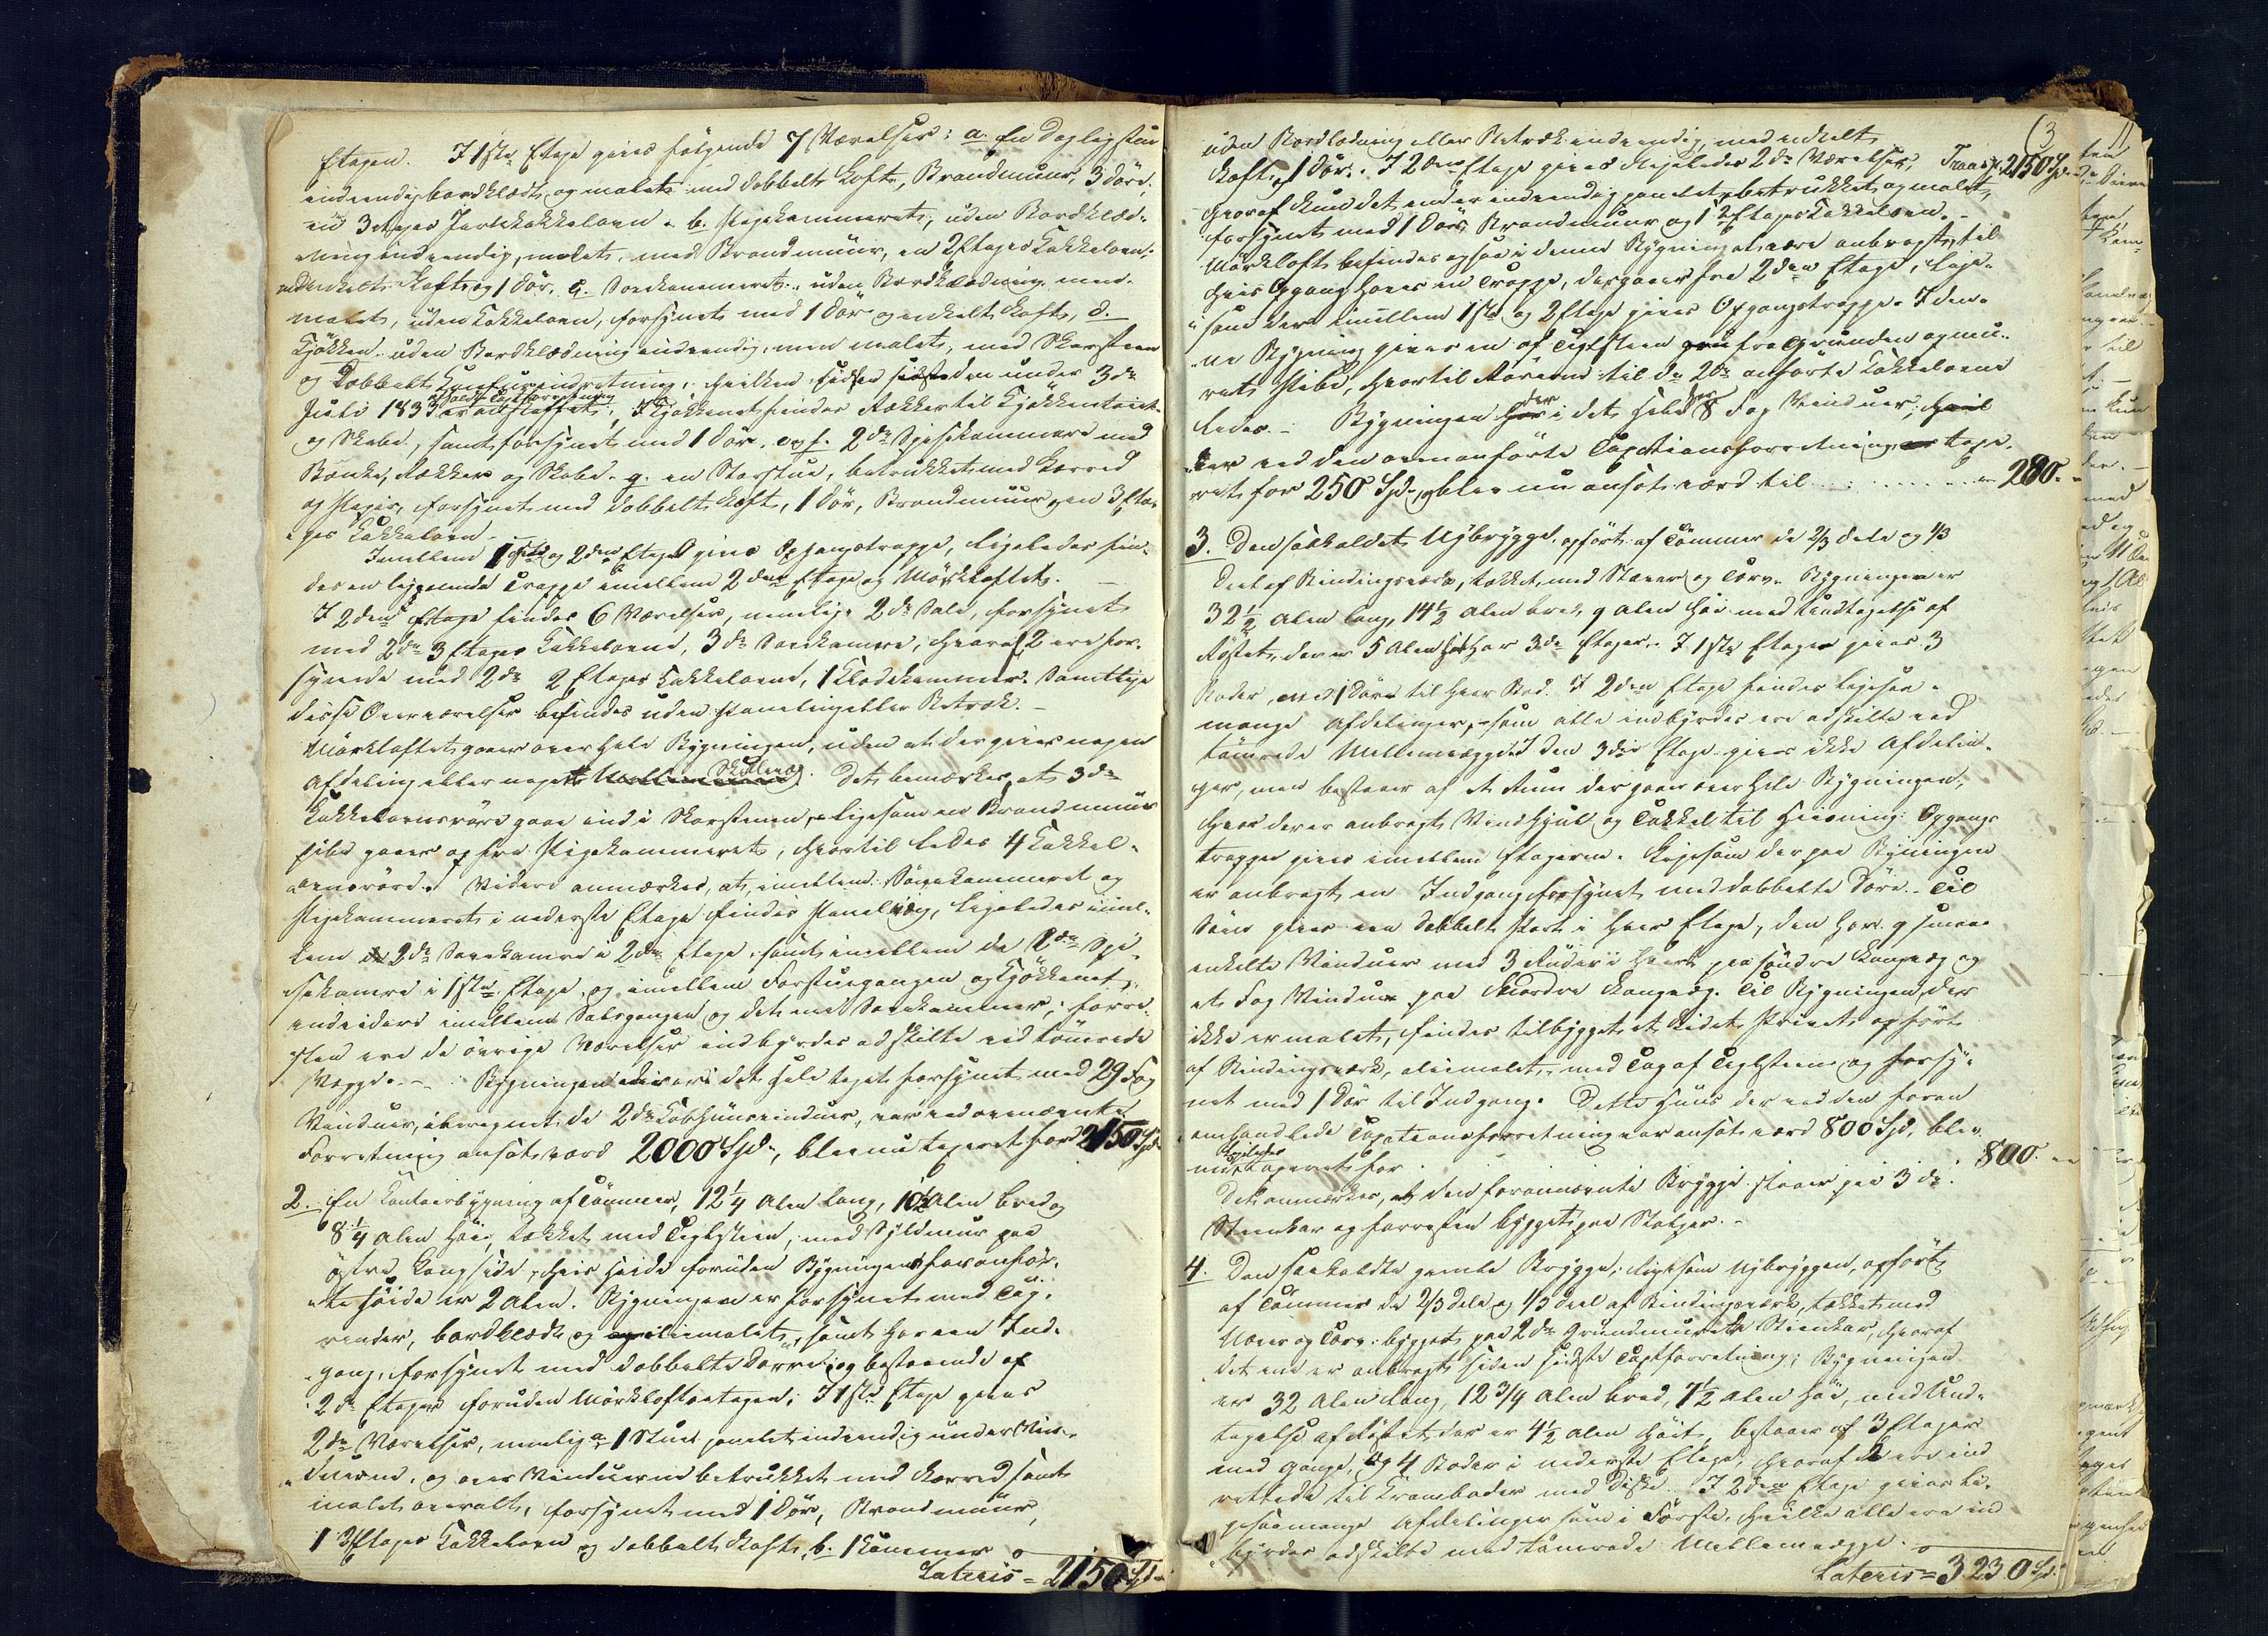 Etagen. I 1ste Etage gives følgende 7 Værelser: a. En Dagligstue
indvendig bordklædt og malet med dobbelt Loft, Brandmuur, 3 Døre,
en 3 Etages Jernkakkelovn. b. Pigekammeret, uden Bordklæd-
ning indvendig, malet, med Brandmuur, en 2 Etages Kakkelovn,
enkelt Loft og 1 Dør. c. Sovekammeret, uden Bordklædning, men
malet, uden Kakkelovn, forsynet med 1 Dør og enkelt Loft, d.
Kjøkken uden Bordklædning indvendig, men malet, med Skorsteen
og dobbelt indretning, hvilken siden den under 3de
Juli 1833 afholdte Taxtforretning er anskaffet; I Kjøkkenet findes Rækker til Kjøkkentøiet
og Skabe, samt forsynet med 1 Dør. e og f. 2de Spisekammere med
Bænke, Rækker og Skabe. g. en Storstue, betrukket med Lærred
og Papir, forsynet med dobbelt Loft, 1 Dør, Brandmuur og en 3 Eta-
ges Kakkelovn.
Imellem 1ste og 2den Etage gives Opgangstrappe, ligeledes fin-
des en lignende Trappe imellem 2den Etage og Mørkloftet.
I 2den Etage findes 6 Værelser, nemlig: 2de Sale, forsynet
med 2de 3 Etages Kakkelovne, 3de Sovekamre, hvoraf 2 ere for-
synede med 2de 2 Etages Kakkelovne, 1 Klædekammer. Samtlige
disse Overværelser befindes uden Paneling eller Betræk.
Mørkloftet gaaer over hele Bygningen, uden at der gives nogen
Afdeling eller noget Skillevæg. Det bemærkes, at 3de
Kakkelovnsrøre gaae ind i Skorstenen, ligesom en Brandmuur
pibe gaaer op fra Pigekammeret, hvortil ledes 4 Kakkel-
ovnsrøre. Videre anmærkes, at imellem Sovekammeret og
Pigekammeret i nederste Etage findes Panelvæg, ligeledes imel-
lem 2de Sovekamre i 2den Etage, samt imellem de 2de Spi-
sekamre i 1ste Etage, og imellem Forstuegangen og Kjøkkenet,
endvidere imellem Salsgangen og det ene Sovekammer; forre-
sten ere de øvrige Værelser indbyrdes adskilte ved tømrede
Vægge. Bygningen, der er i det hele taget forsynet med 29 Fag
Vinduer, iberegnet de 2de Vinduer, var ved ovennævnte
Forretning ansat værd 2000 Spd., blev nu taxeret for 2150 Spd
2. En Contoirbygning af Tømmer, 12 1/4 Alen lang, 10 1/2 Alen bred og
8 1/4 Alen høi, tækket med Teglsteen, med Syldmuur paa
østre Langside, hvis Høide foruden Bygningens foranfør-
te Høide er 2 Alen. Bygningen er forsynet med Tag-
render, bordklædt og oliemalet, samt har een Ind-
gang, forsynet med dobbelte Dørre og bestaaende af
2de Etager foruden Mørkloftsetagen; I 1ste Etage gives
2de Værelser, nemlig a. 1 Stue panelet indvendig under Vin-
duerne, og over Vinduerne betrukket med Lærred samt
malet overalt, forsynet med 1 Dør, Brandmuur,
1 3 Etages Kakkelovn og dobbelt Loft, b. 1 Kammer
Lateris = 2150 Spd
(3
uden Bordklædning eller Betræk indvendig, med enkelt
Loft, 1 Dør. I 2den Etage gives ligeledes 2de Værelser, Transp. 2150 Spd
hvoraf kun det ene er indvendig panelet, betrukket og malet,
forsynet med 1 Dør, Brandmuur og 1 2 Etages Kakkelovn.
Mørkloft befindes ogsaa i denne Bygning at være anbragt, til
hvis Opgang haves en Trappe, der gaaer fra 2den Etage, lige-
som der imellem 1ste og 2 Etage gives Opgangstrappe. I den-
ne Bygning gives en af Teglsteen fra Grunden opmu-
ret Pibe, hvortil Rørene til de 2de anførte Kakkelovne
ledes. Bygningen, der i det hele har 8 Fag Vinduer,
ved den ovenanførte Taxationsforretning taxe-
ret for 250 Spd., og blev nu ansat værd til . . . . . . . 280.
3. Den saakaldte Nybrygge, opført af Tømmer de 2/3 dele og 1/3
deel af Bindingsværk, tækket med Næver og Torv. Bygningen er
32 1/2 Alen lang, 14 1/2 Alen bred, 9 Alen høi med Undtagelse af
Røstet, der er 5 Alen høit, har 3de Etager. I 1ste Etage gives 3
Boder, med 1 Dør til hver Bod. I 2den Etage findes ligesaa-
mange Afdelinger, som alle indbyrdes ere adskilte ved
tømrede Mellemvægge. I den 3die Etage gives ikke Afdelin-
ger, men bestaaer af et Rum der gaaer over hele Bygningen,
hvor der er anbragt Vindhjul og Takkel til Heisning. Opgangs-
trapper gives imellem Etagerne. Ligesom der paa Bygningen
er anbragt en Indgang forsynet med dobbelte Døre. Til
Søen gives een dobbelt Port i hver Etage, den har 9 smaae
enkelte Vinduer med 3 Ruder i hvert paa søndre Langvæg og
et Fag Vinduer paa Nordre Langvæg. Til Bygningen, der
ikke er malet, findes tilbygget et lidet Privet opført
af Bindingsværk, oliemalet, med Tag af Teglsteen og forsy-
net med 1 Dør til Indgang. Dette Huus der ved den foran
omhandlede Taxationsforretning var ansat værd 800 Spd, blev
nu ligeledes taxeret for . . . 800.
Det anmærkes, at den forannævnte Brygge staaer paa 3de
Steenkar og forresten bygget paa Stolper.
4. Den saakaldte gamle Brygge, ligesom Nybryggen, opført
af Tømmer de 2/3 dele og 1/3 deel af Bindingsværk, tækket med
Næver og Torv, bygget paa 2de Grundmurede Steenkar, hvoraf
det ene er anbragt siden sidste Taxtforretning; Bygningen
er 32 Alen lang, 12 3/4 Alen bred, 7 1/2 Alen høi, med Und-
tagelse af Røstet, der er 4 1/2 Alen høit, bestaaer af 3 Etager
med Gange, og 4 Boder i nederste Etage, hvoraf 2 ere ind
rettede til Kramboder med Diske. I 2den Etage gives li-
gesaamange Afdelinger som i Første, hvilke alle ere ind
byrdes adskilte med tømrede Mellemvægge.
Lateris = 3230 Spd.